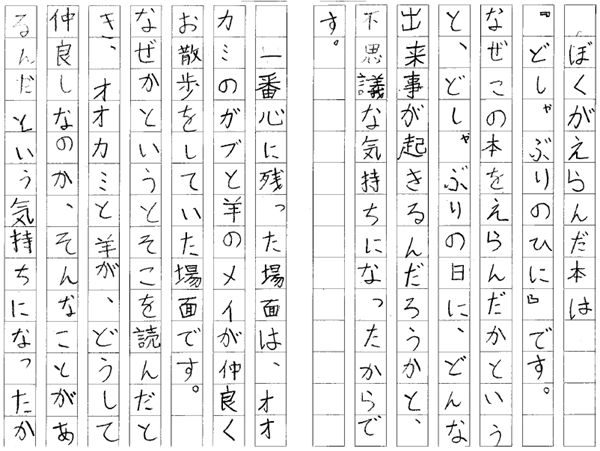 ぼくがえらんだ本は
『どしゃぶりのひに』です。
なぜこの本をえらんだかという
と、どしゃぶりの日に、どんな
出来事が起きるんだろうかと、
不思議な気持ちになったからで
す。
一番心に残った場面は、オオ
カミのガブと羊のメイが仲良く
お散歩をしていた場面です。
なぜかというとそこを読んだと
き、オオカミと羊が、どうして
仲良しなのか、そんなことがあ
るんだという気持ちになったか